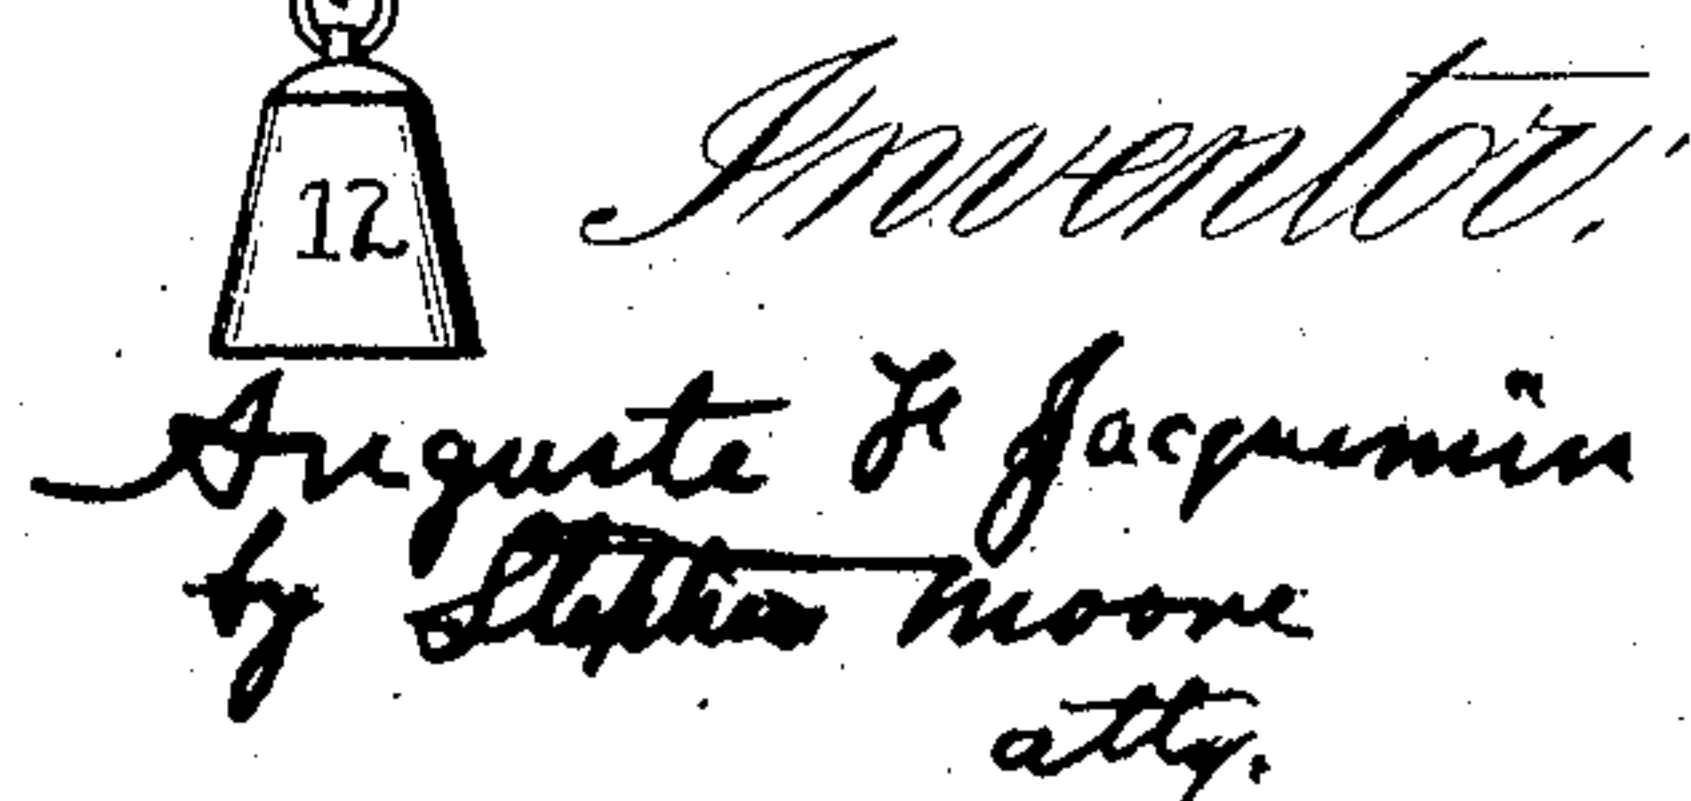 12
Inventor:
Auguste F. Jacquemin
by Stephen Moore
atty.